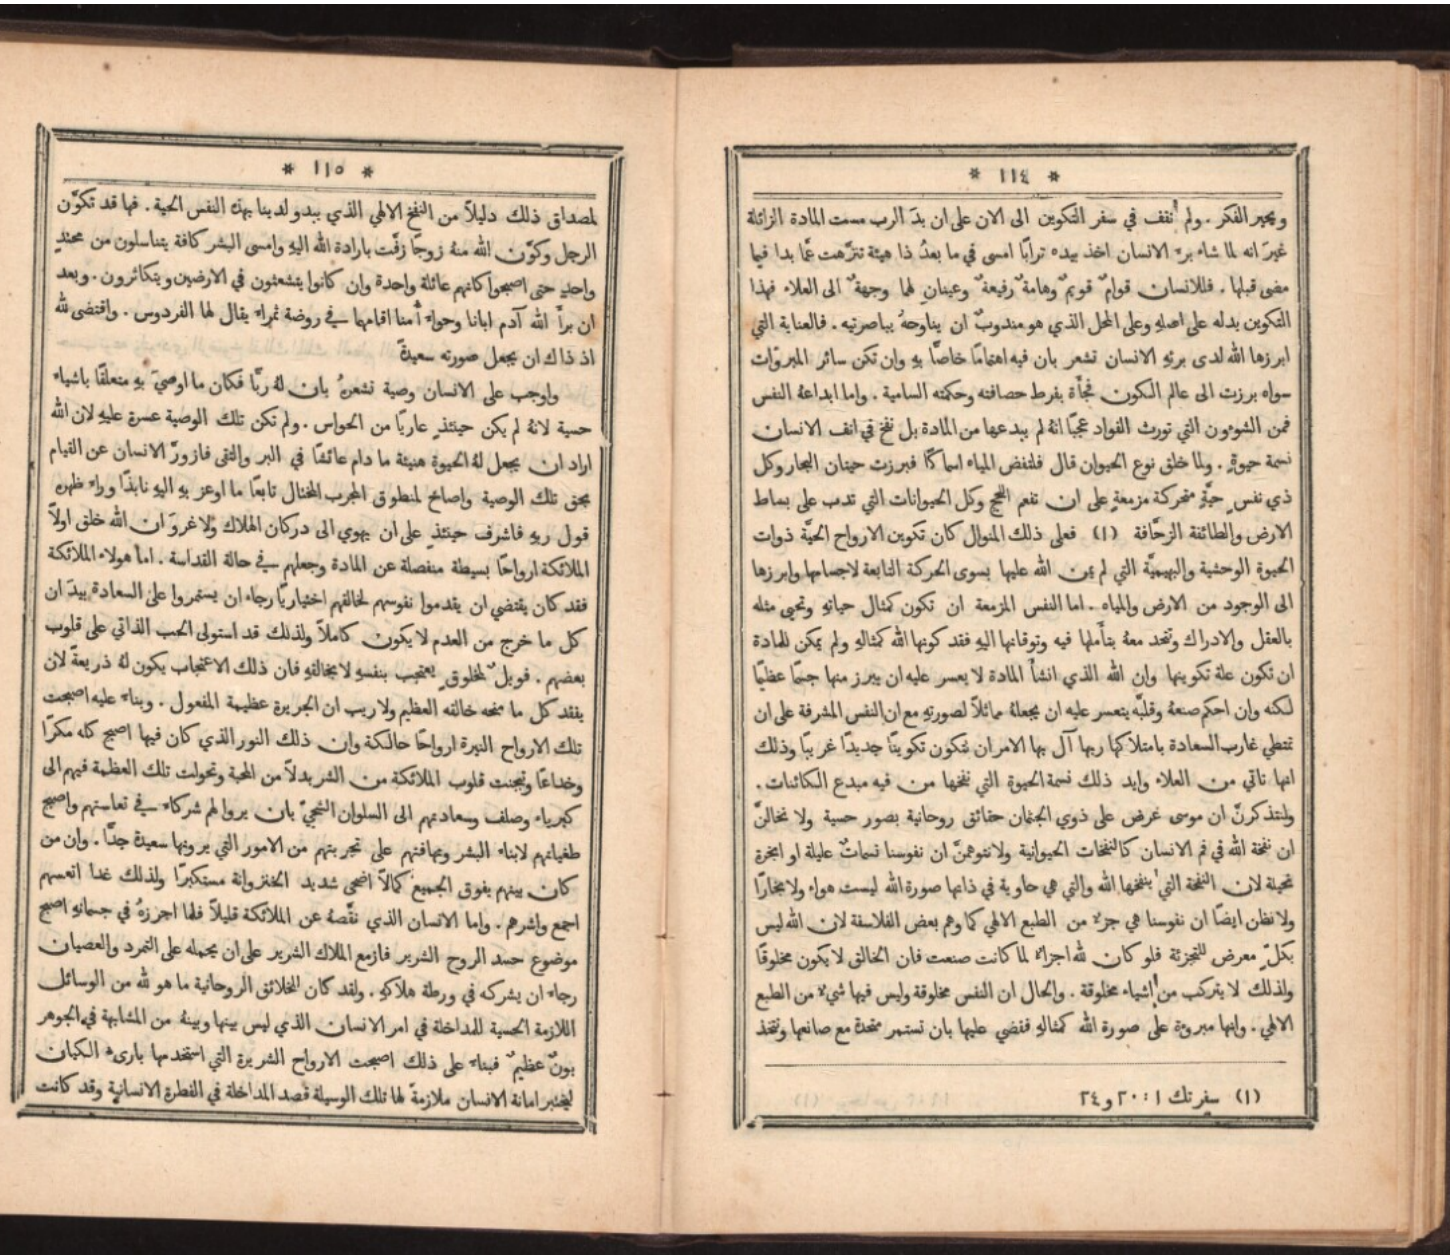 * ١١٤ *
ويحير الفكر . ولم نقف في سفر التكوين الى الان على ان يدَ الرب مست المادة الزائلة
غيرَ انه لما شاء برء الانسان اخذ بيده ترابًا امسى في ما بعدُ ذا هيئة تنزَّهت عمَّا بدا فيما
مضى قبلها . فللانسان قوامٌ قويمٌ وهامة رفيعةٌ وعينانِ لهما وجهةٌ الى العلاء فهذا
التكوين يدله على اصلهِ وعلى المحل الذي هو مندوبٌ ان يناوحهُ بباصرتيه . فالعناية التي
ابرزها الله لدى برئهِ الانسان تشعر بان فيه اهتمامًا خاصًّا بهِ وان تكن سائر المبروَّات
سواه برزت الى عالم الكون فجأة بفرط حصافته وحكمته السامية . واما ابداعهُ النفس
فمن الشوءون التي تورث الفواد عجبًا انهُ لم يبدعها من المادة بل نفخ في انف الانسان
نسمة حيوةٍ . ولما خلق نوع الحيوان قال فلتفض المياه اسماكًا فبرزت حيتان البحار وكل
ذي نفس حيَّةٍ متحركة مزمعةٍ على ان تفعم اللجج وكل الحيوانات التي تدب على بساط
الارض والطائفة الزحَّافة (١) فعلى ذلك المنوال كان تكوين الارواح الحيَّة ذوات
الحيوة الوحشية والبهيميَّة التي لم يمن الله عليها بسوى الحركة التابعة لاجسامها وابرزها
الى الوجود من الارض والمياه . اما النفس المزمعة ان تكون كمثال حياتهِ وتحيى مثله
بالعقل والادراك وتتحد معهُ بتأملها فيه وتوقانها اليهِ فقد كونها الله كمثالهِ ولم يمكن للمادة
ان تكون علة تكوينها وان الله الذي انشأ المادة لا يعسر عليه ان يبرز منها جسمًا عظيمًا
لكنه وان احكم صنعهُ وقلبَّه يتعسر عليه ان يجعلهُ مماثلاً لصورتهِ مع ان النفس المشرفة على ان
تمتطي غارب السعادة بامتلاكها ربها آل بها الامر ان تتكون تكوينًا جديدًا غريبًا وذلك
انها تاتي من العلاء وايد ذلك نسمة الحيوة التي نفخها من فيه مبدع الكائنات .
ولنتذكرنَّ ان موسى عرض على ذوي الجثمان حقائق روحانية بصور حسية ولا نخالنَّ
ان نفخة الله في فم الانسان كالنفخات الحيوانية ولا نتوهمنَّ ان نفوسنا نسماتٌ عليلة او ابخرة
نحيلة لان النفخة التي ينفخها الله والتي هي حاوية في ذاتها صورة الله ليست هواء ولا بخارًا
ولا نظن ايضًا ان نفوسنا هي جزء من الطبع الالهي كما وهم بعض الفلاسفة لان الله ليس
بكلٍّ معرض للتجزئة فلو كان لله اجزاء لما كانت صنعت فان الخالق لا يكون مخلوقًا
ولذلك لا يتركب من اشياء مخلوقة . والحال ان النفس مخلوقة وليس فيها شيء من الطبع
الالهي . وانها مبروءة على صورة الله كمثالهِ فقضي عليها بان تستمر متحدة مع صانعها ونتخذ
(١) سفر تك ١ : ٢٠ و ٢٤
* ١١٥ *
لمصداق ذلك دليلاً من النفخ الالهي الذي يبدو لدينا بهذه النفس الحية . فها قد تكوَّن
الرجل وكوَّن الله منهُ زوجًا زفَّت بارادة الله اليهِ وامسى البشر كافة يتناسلون من محتدٍ
واحدٍ حتى اصبحوا كانهم عائلة واحدة وان كانوا يتشعثون في الارضين ويتكاثرون . وبعد
ان برأ الله آدم ابانا وحواء أمنا اقامهما في روضة ثمراء يقال لها الفردوس . واقتضى لله
اذ ذاك ان يجعل صورته سعيدةً
واوجب على الانسان وصية تشعرهُ بان لهُ ربًّا فكان ما اوصيَ بهِ متعلقًا باشياء
حسية لانهُ لم يكن حينئذٍ عاريًا من الحواس . ولم تكن تلك الوصية عسرة عليهِ لان الله
اراد ان يجعل لهُ الحيوة هنيئة ما دام عائشًا في البر والتقى فازورّ الانسان عن القيام
بحق تلك الوصية واصاخ لمنطوق المجرب المختال تابعًا ما اوعز بهِ اليهِ نابذًا وراء ظهره
قول ربهِ فاشرف حينئذٍ على ان يهوي الى دركان الهلاك ولا غروَ ان الله خلق اولاً
الملائكة ارواحًا بسيطة منفصلة عن المادة وجعلهم في حالة القداسة . اما هولاء الملائكة
فقد كان يقتضي ان يقدموا نفوسهم لخالقهم اختياريًّا رجاء ان يستمروا على السعادة بيدَ ان
كل ما خرج من العدم لا يكون كاملاً ولذلك قد استولى الحب الذاتي على قلوب
بعضهم . فويلٌ لمخلوقٍ يعتجب بنفسهِ لا بخالقهِ فان ذلك الاعتجاب يكون لهُ ذريعةً لان
يفقد كل ما منحه خالقه العظيم ولا ريب ان الجريرة عظيمة المفعول . وبناء عليه اصبحت
تلك الارواح النيرة ارواحًا حالكة وان ذلك النور الذي كان فيها اصبح كله مكرًا
وخداعًا وتجنت قلوب الملائكة من الشر بدلاً من المحبة وتحولت تلك العظمة فيهم الى
كبرياء وصلف وسعادتهم الى السلوان الشجيّ بان يروا لهم شركاء في تعاستهم واصبح
طغيانهم لابناء البشر وتهافتهم على تجربتهم من الامور التي يرونها سعيدة جدًّا . وان من
كان بينهم يفوق الجميع كمالاً اضحى شديد الخنزوانة مستكبرًا ولذلك غدا اتعسهم
اجمع واشرهم . واما الانسان الذي نقَّصهُ عن الملائكة قليلاً فلما احرزهُ في جسمانهِ اصبح
موضوع حسد الروح الشرير فازمع الملاك الشرير على ان يحمله على التمرد والعصيان
رجاء ان يشركه في ورطة هلاكهِ . ولقد كان للخلائق الروحانية ما هو لله من الوسائل
اللازمة الحسية للمداخلة في امر الانسان الذي ليس بينها وبينهُ من المشابهة في الجوهر
بونٌ عظيمٌ فبناء على ذلك اصبحت الارواح الشريرة التي استخدمها بارئ الكيان
ليختبر امانة الانسان ملازمةً لها تلك الوسيلة قصد المداخلة في الفطرة الانسانية وقد كانت